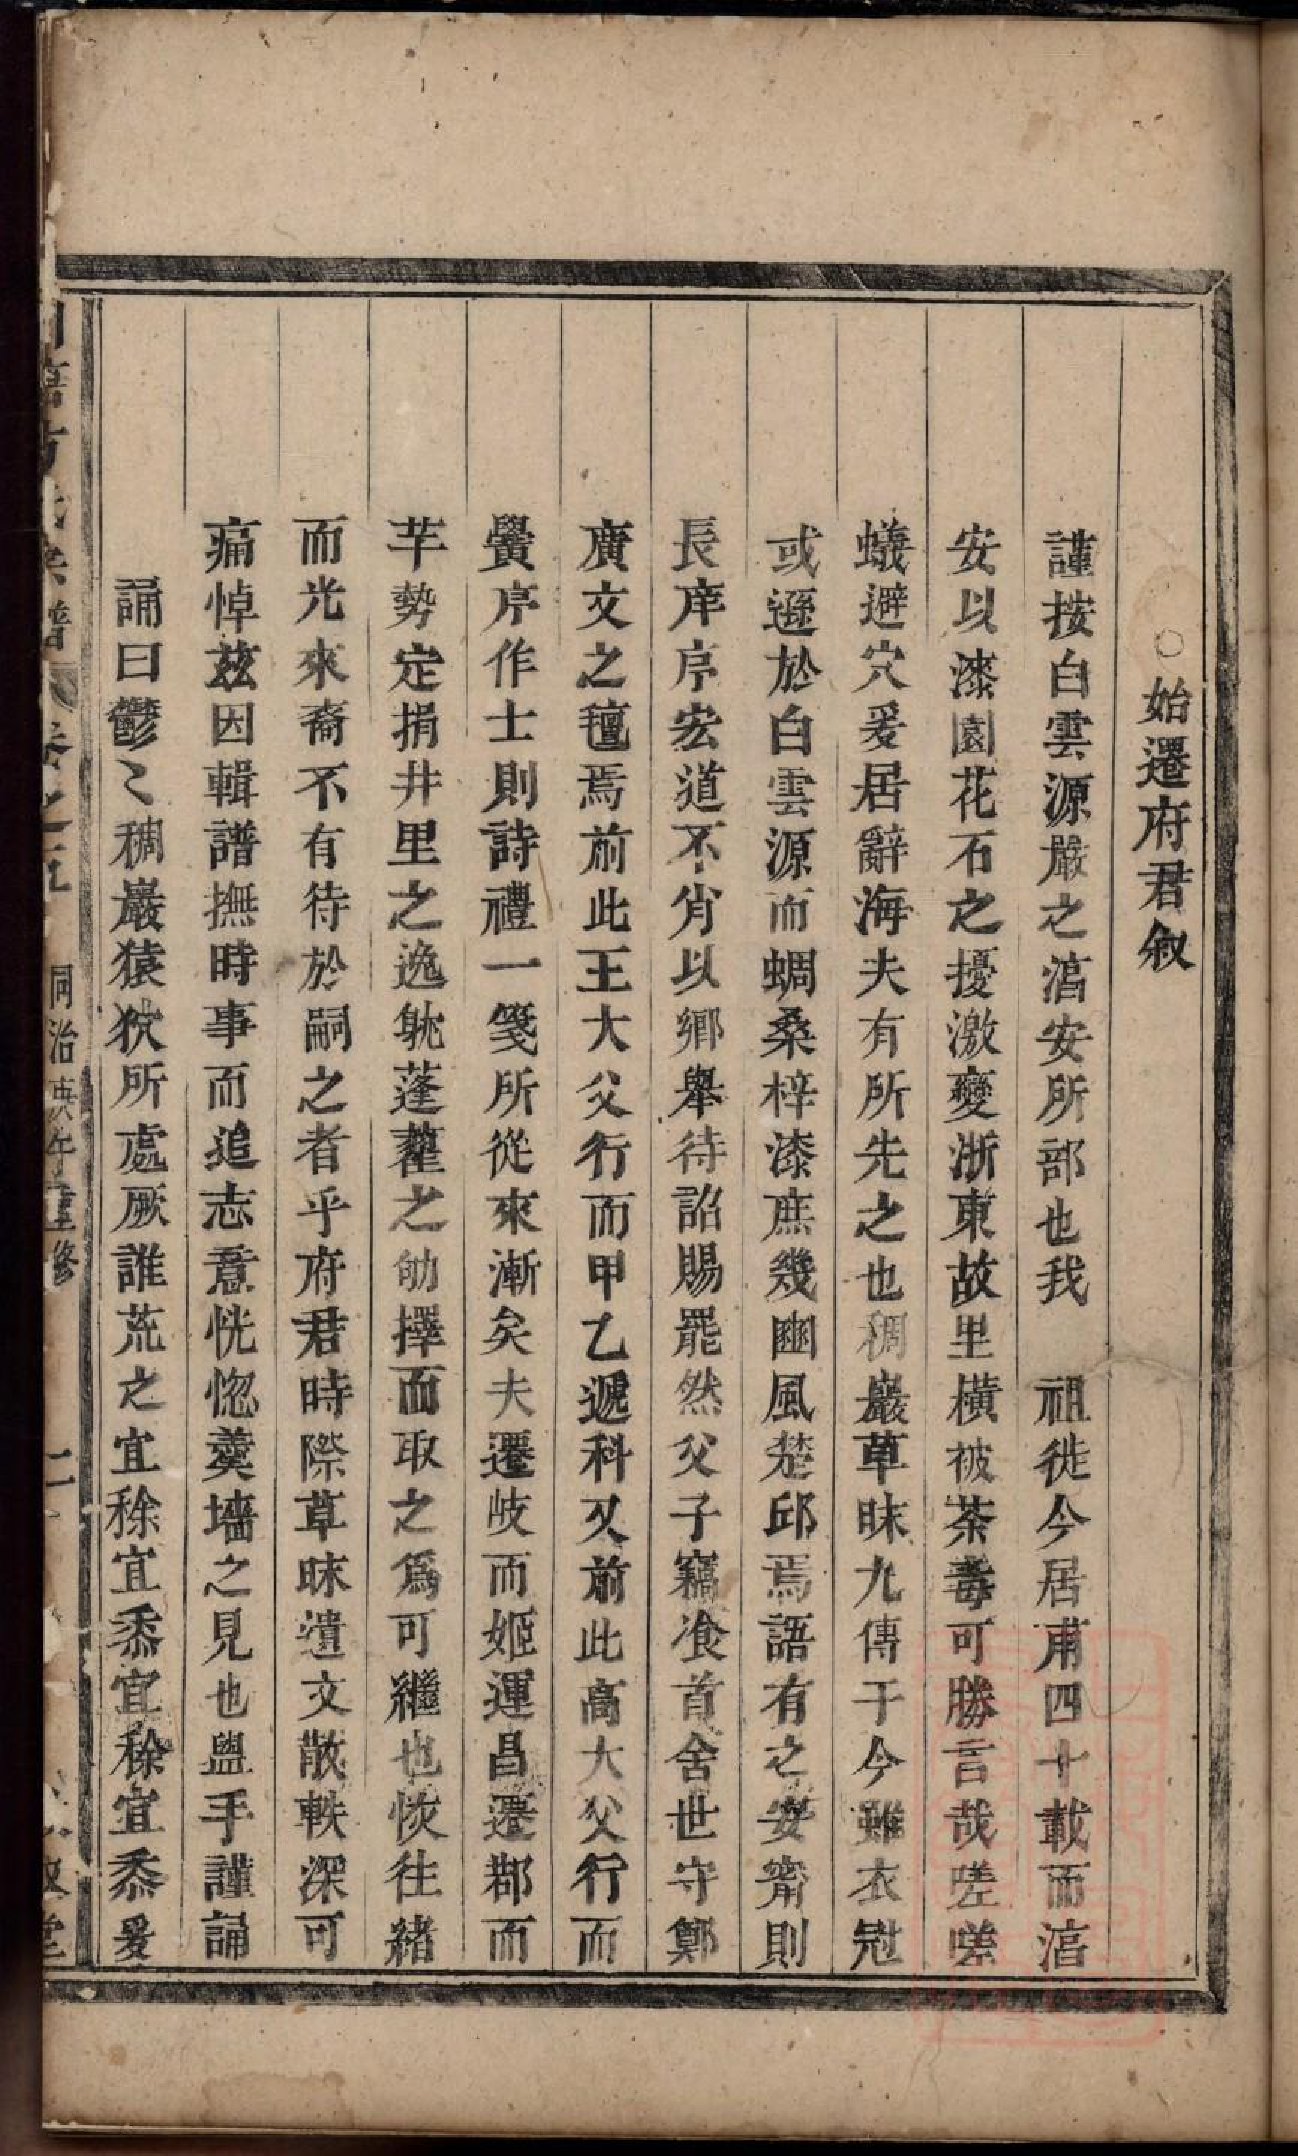 ○始遷府君叙
謹按白雲源嚴之湻安所部也我　祖徙今居甫四十載而湻
安以漆園花石之擾激變浙東故里橫被荼毒可勝言哉嗟嗟
蟻避穴爰居辭海夫有所先之也稠巖草昧九傳于今雖衣冠
或遜於白雲源而蜩桑梓漆庶幾豳風楚邱焉語有之安甯則
長庠序宏道不肖以鄉舉待詔賜罷然父子竊飡首舍世守鄭
廣文之氊焉前此王大父行而甲乙遞科又前此高大父行而
黌序作士則詩禮一箋所從來漸矣夫遷岐而姬運昌遷鄀而
芊勢定捐井里之逸躭蓬藋之劬擇而取之爲可繼也恢往緒
而光來裔不有待於嗣之者乎府君時際草昧遺文散軼深可
痛悼茲因輯譜撫時事而追志意恍惚羹墻之見也盥手謹誦
誦曰鬱〻稠巖猿狖所處厥誰荒之宜稌宜黍宜稌宜黍爰
方氏宗譜　卷之九　同治庚午重修　二